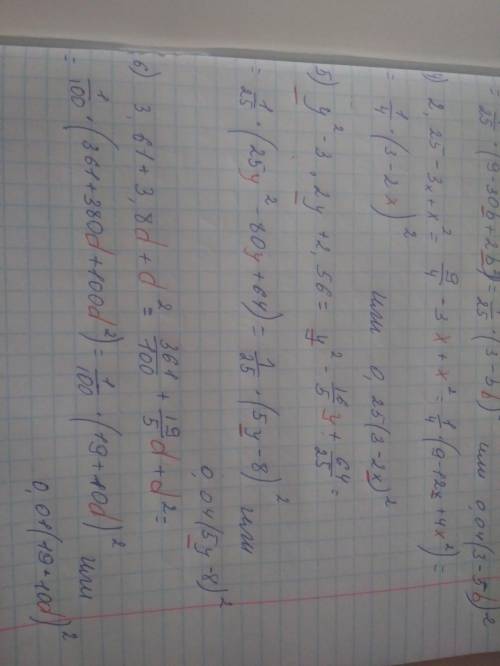 = 1/25 · (9-30b+25b²) = 1/25 · (3-5b)² или 0,04(3-5b)²
4) 2,25 - 3x + x² = 9/4 - 3x + x² = 1/4 · (9-12x+4x²) =
= 1/4 · (3-2x)² или 0,25(3-2x)²
5) y² - 3,2y + 2,56 = y² - 16/5 y + 64/25 =
= 1/25 · (25y² - 80y + 64) = 1/25 · (5y-8)² или
0,04(5y-8)²
6) 3,61 + 3,8d + d² = 361/100 + 19/5 d + d² =
= 1/100 · (361+380d+100d²) = 1/100 · (19+10d)² или
0,01(19+10d)²